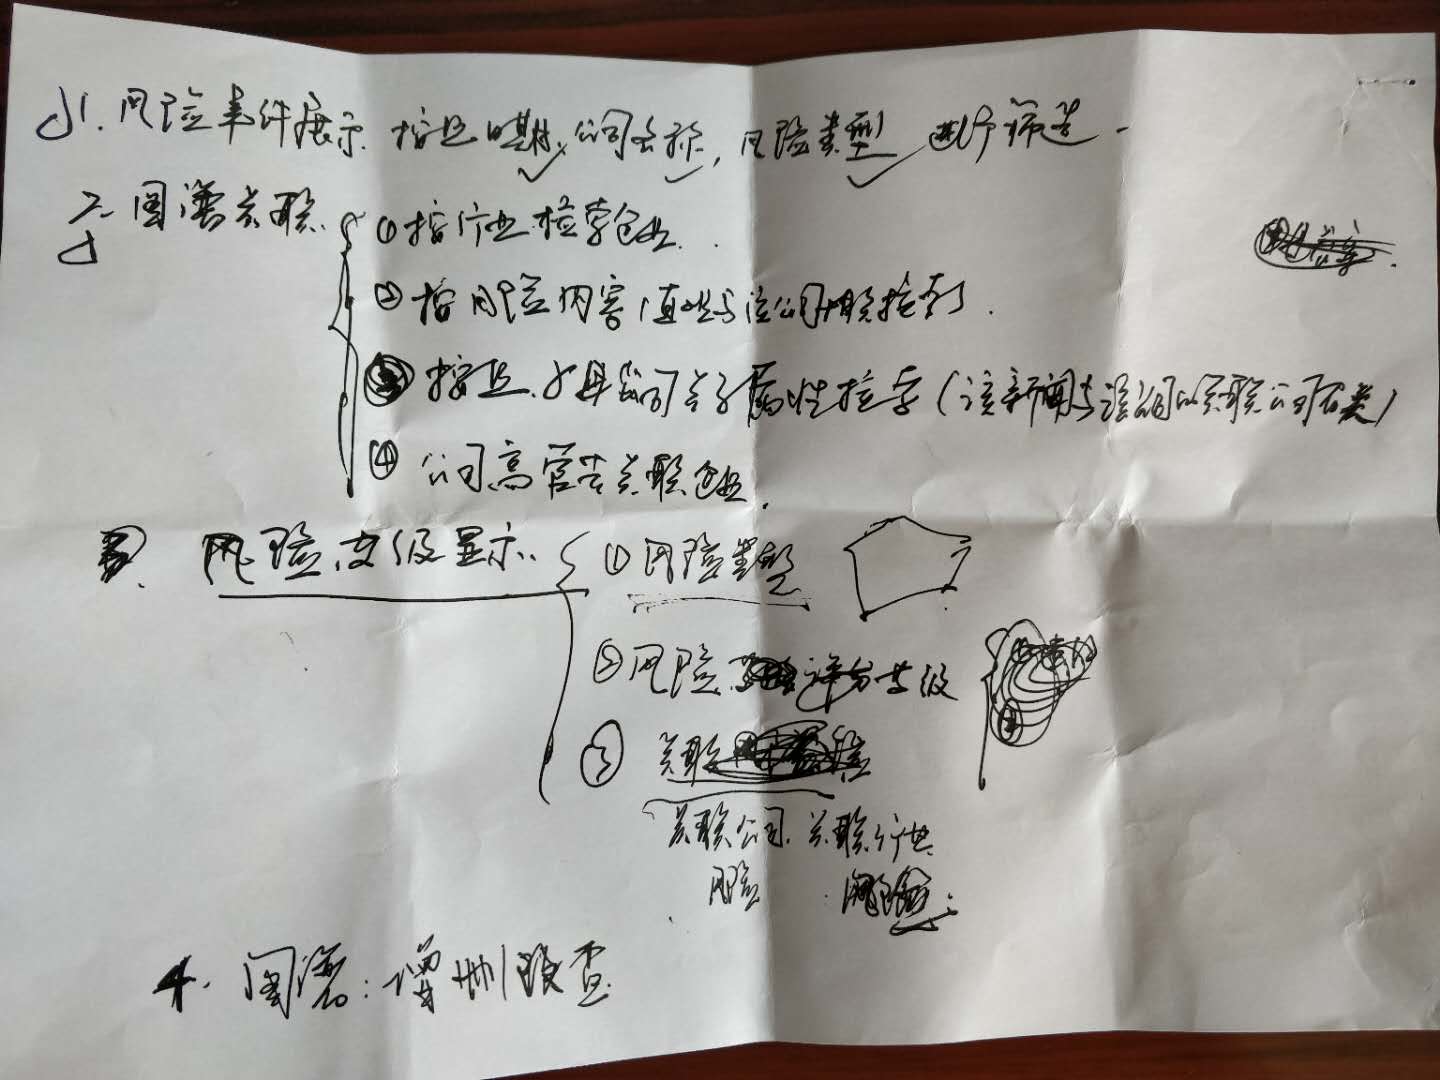 1. 风险事件展示. 按照日期, 公司名称, 风险类型 进行筛选.
2. 图谱关联. ① 按行业检索企业.
② 按风险内容 直接与该公司相关检索.
③ 按照. 子母公司等属性检索 (该新闻与该公司的关联公司有关)
④ 公司高管等关联企业.
3. 风险等级显示. ① 风险类型
② 风险 评分等级
③ 关联
关联公司. 关联行业
风险 风险.
4. 图谱: 增删改查